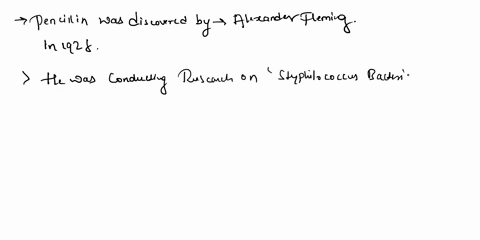 → Pencillin was discovered by → Alexander Fleming.
In 1928.
> He was Conducting Research on 'Styphilococcus Bacteri'.